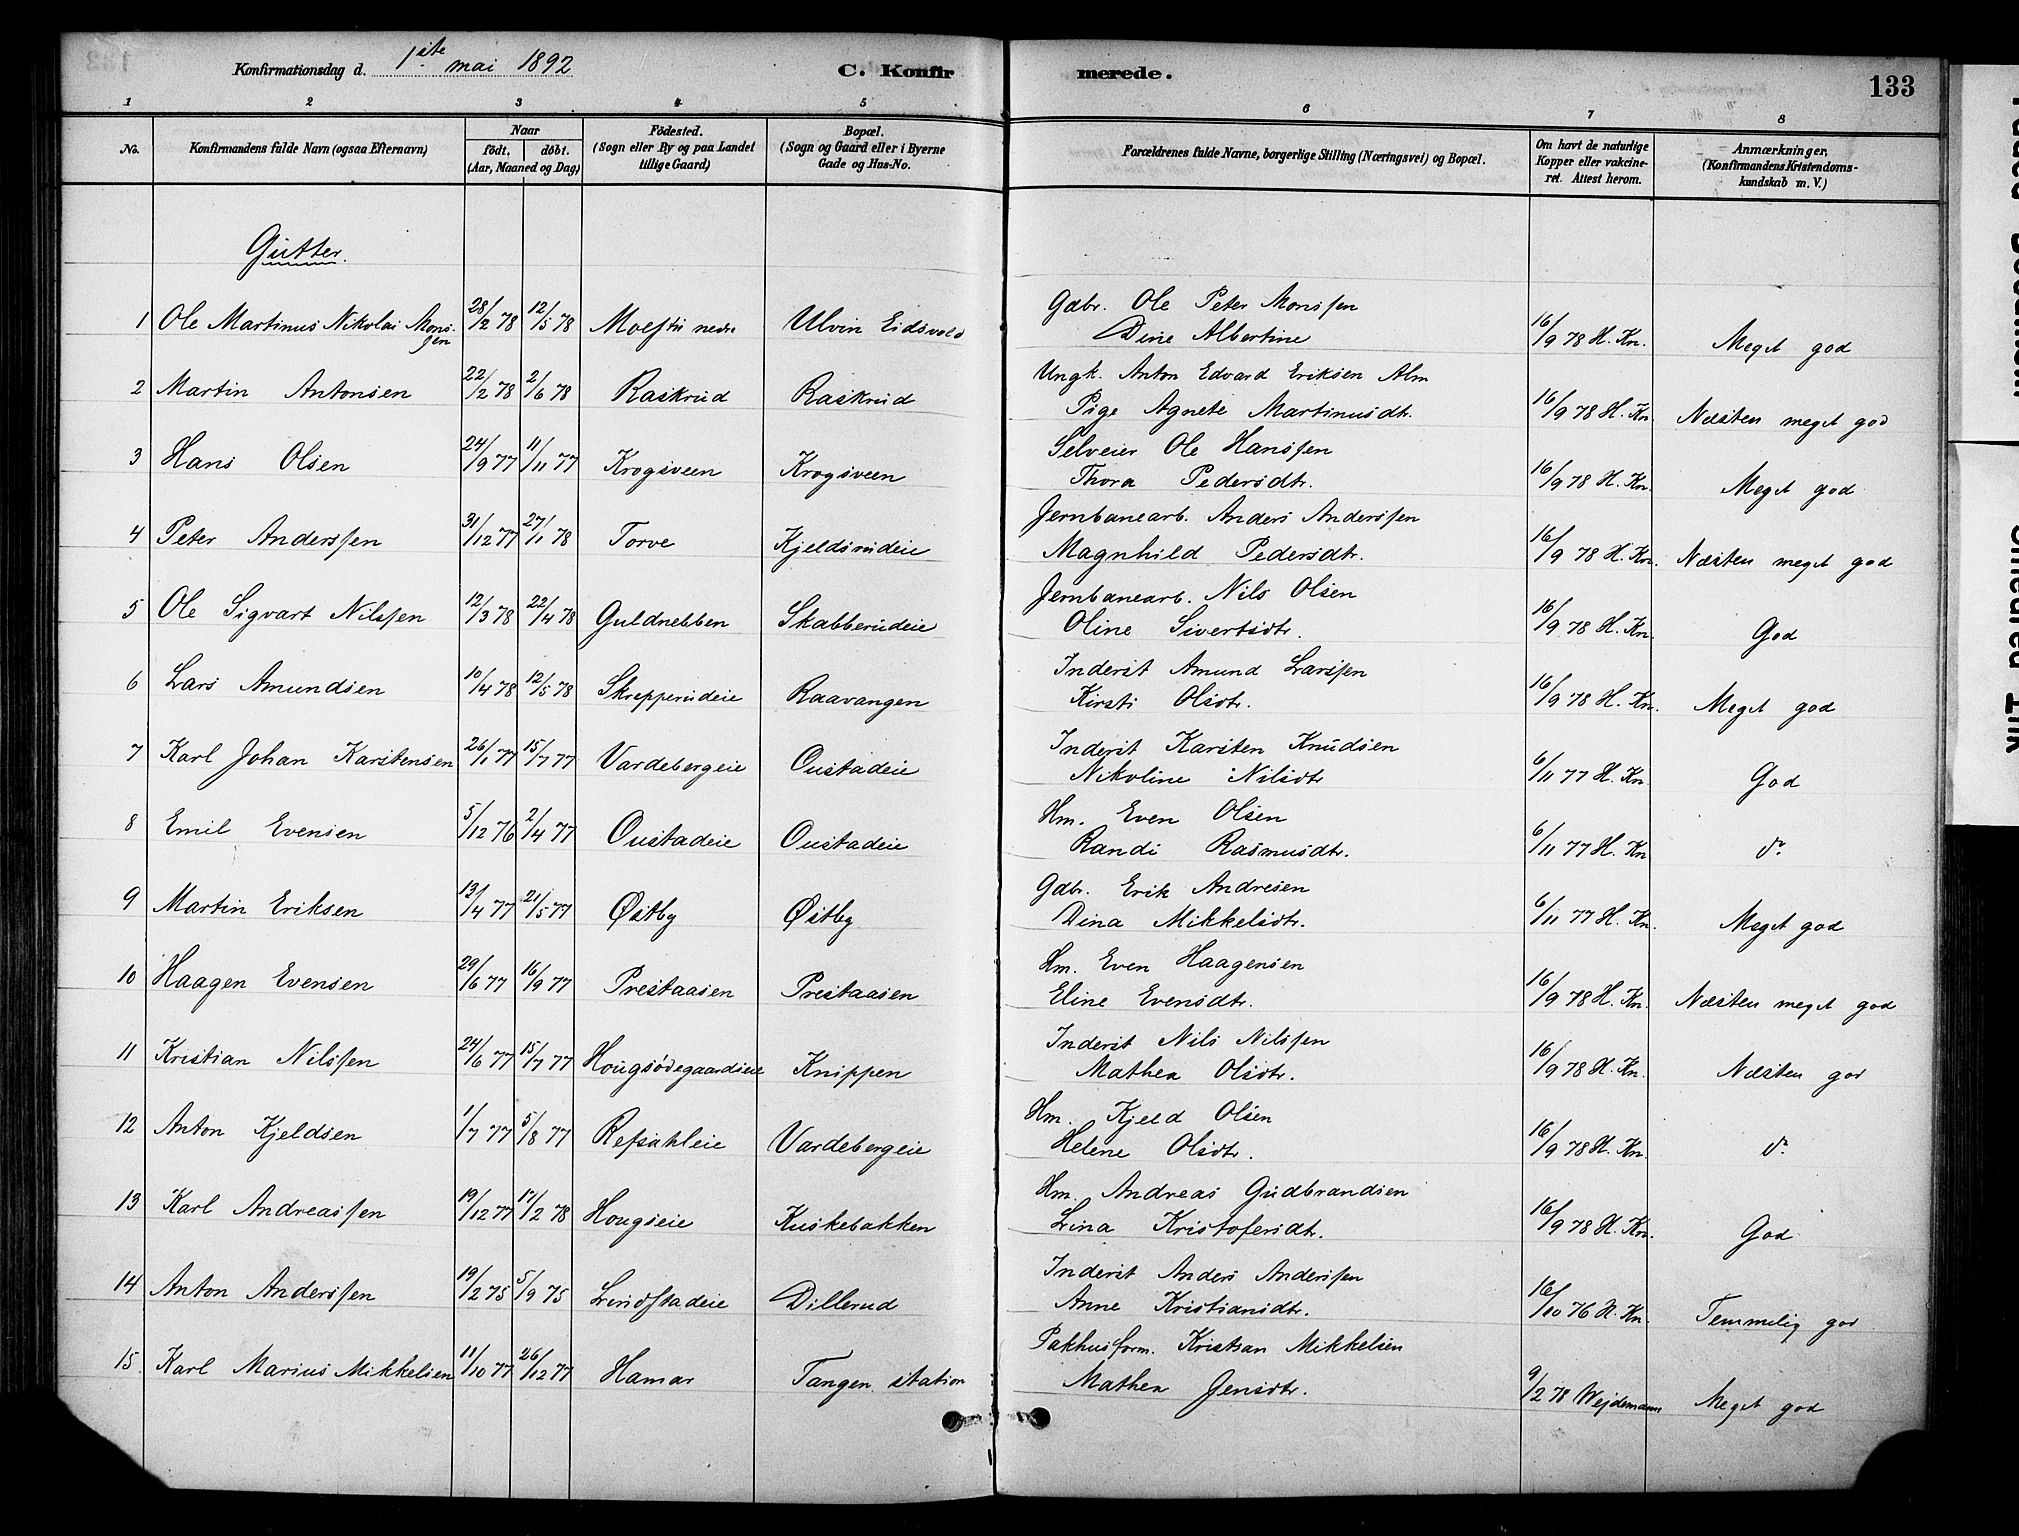 Konfirmationsdag d. 1ste mai 1892 C. Konfirmerede. 133
1 2 3 4 5 6 7 8
No. Konfirmandens fulde Navn (ogsaa Efternavn) Naar født, døbt. (Aar, Maaned og Dag) Fødested. (Sogn eller By og paa Landet tillige Gaard) Bopæl. (Sogn og Gaard eller i Byerne Gade og Hus-No. Forældrenes fulde Navne, borgerlige Stilling (Næringsvei) og Bopæl. Om havt de naturlige Kopper eller vakcineret. Attest herom. Anmærkninger, (Konfirmandens Kristendomskundskab m. V.)
Gutter.
Gdbr. Ole Peter Monssen
1 Ole Martinus Nikolai Monssen 28/2 78 12/5 78 Molstu nedre Ulvin Eidsvold Dine Albertine 16/9 78 H. Kn. Meget god
Ungk. Anton Edvard Eriksen Alm
2 Martin Antonsen 22/2 78 2/6 78 Raskrud Raskrud Pige Agnete Martinusdt. 16/9 78 H. Kn. Næsten meget god
Selveier Ole Hanssen
3 Hans Olsen 24/9 77 11/11 77 Krogsveen Krogsveen Thora Pedersdtr. 16/9 78 H. Kn. Meget god
Jernbanearb. Anders Anderssen
4 Peter Anderssen 31/12 77 27/1 78 Torve Kjeldsrudeie Magnhild Pedersdtr. 16/9 78 H. Kn. Næsten meget god
Jernbanearb. Nils Olsen
5 Ole Sigvart Nilssen 12/3 78 22/4 78 Guldnebben Skabberudeie Oline Sivertsdtr. 16/9 78 H. Kn. God
Inderst Amund Larssen
6 Lars Amundsen 10/4 78 12/5 78 Skrepperudeie Raavangen Kirsti Olsdtr. 16/9 78 H. Kn. Meget god
Inderst Karsten Knudsen
7 Karl Johan Karstensen 26/1 77 15/7 77 Vardebergeie Oustadeie Nikoline Nilsdtr 6/11 77 H. Kn. God
Hm. Even Olsen
8 Emil Evensen 5/12 76 2/4 77 Oustadeie Oustadeie Randi Rasmusdtr. 6/11 77 H. Kn do
Gdbr. Erik Andresen
9 Martin Eriksen 13/4 77 21/5 77 Østby Østby Dina Mikkelsdtr. 6/11 77 H. Kn. Meget god
Hm. Even Haagensen
10 Haagen Evensen 29/6 77 16/9 77 Prestaasen Prestaasen Eline Evensdtr. 16/9 78 H. Kn. Næsten meget god
Inderst Nils Nilssen
11 Kristian Nilssen 24/6 77 15/7 77 Hougsødegaardseie Knippen Mathea Olsdtr. 16/9 78 H. Kn. Næsten god
Hm. Kjeld Olsen
12 Anton Kjeldsen 1/7 77 5/8 77 Refsahleie Vardebergeie Helene Olsdtr. 16/9 78 H. Kn. do
Hm. Andreas Gudbrandsen
13 Karl Andreassen 19/12 77 17/2 78 Hougseie Kuskebakken Lina Kristofersdtr. 16/9 78 H. Kn. God
Inderst Anders Anderssen
14 Anton Anderssen 19/2 75 5/9 75 Lindstadeie Dillerud Anne Kristiansdtr. 16/10 76 H. Kn. Temmelig god
Pakhusform. Kristian Mikkelsen
15. Karl Marius Mikkelsen 11/10 77 26/12 77 Hamar Tangen station Mathea Jensdtr. 9/2 78 Wejdemann Meget god